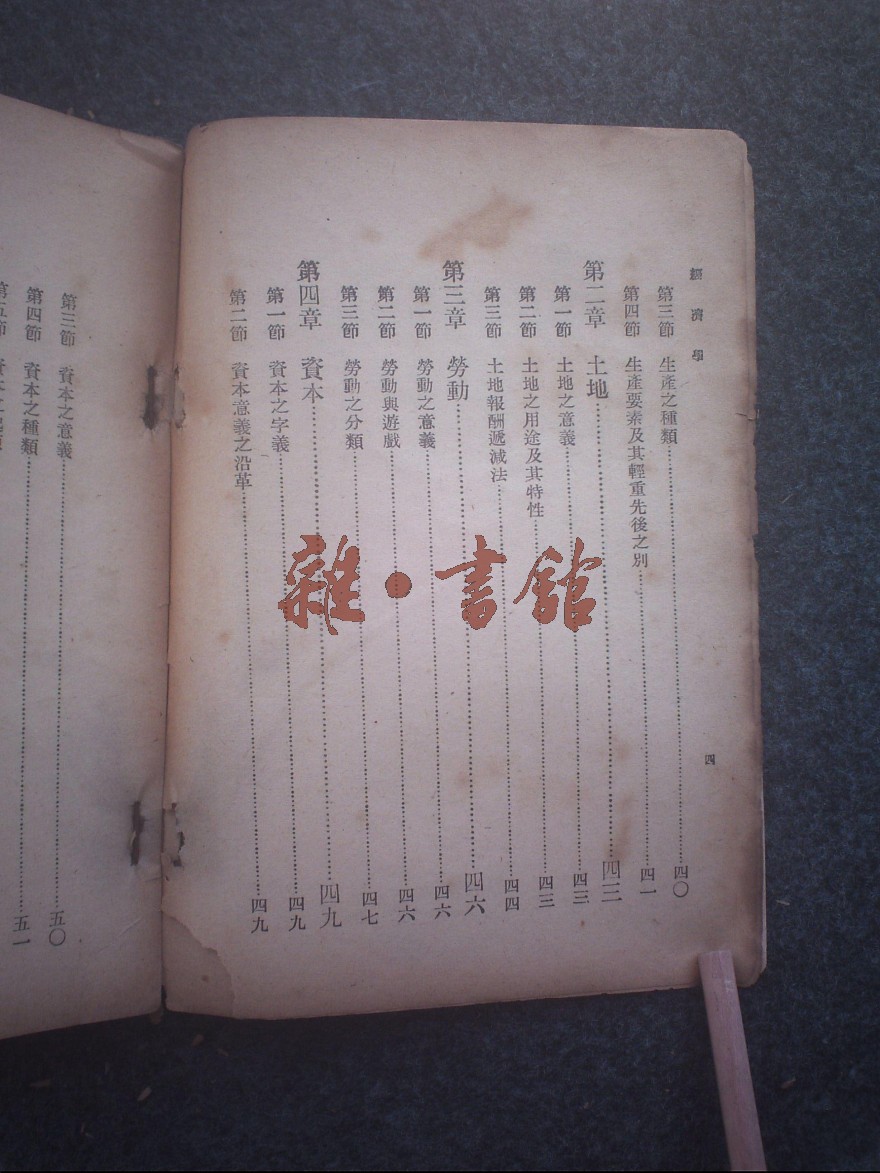 經濟學
四
第三節 生產之種類 四〇
第四節 生產要素及其輕重先後之別 四一
第二章 土地 四三
第一節 土地之意義 四三
第二節 土地之用途及其特性 四三
第三節 土地報酬遞減法 四四
第三章 勞動 四六
第一節 勞動之意義 四六
第二節 勞動與遊戲 四六
第三節 勞動之分類 四七
第四章 資本 四九
第一節 資本之字義 四九
第二節 資本意義之沿革 四九
第三節 資本之意義 五〇
第四節 資本之種類 五一
第五節 資本之
雜・書館